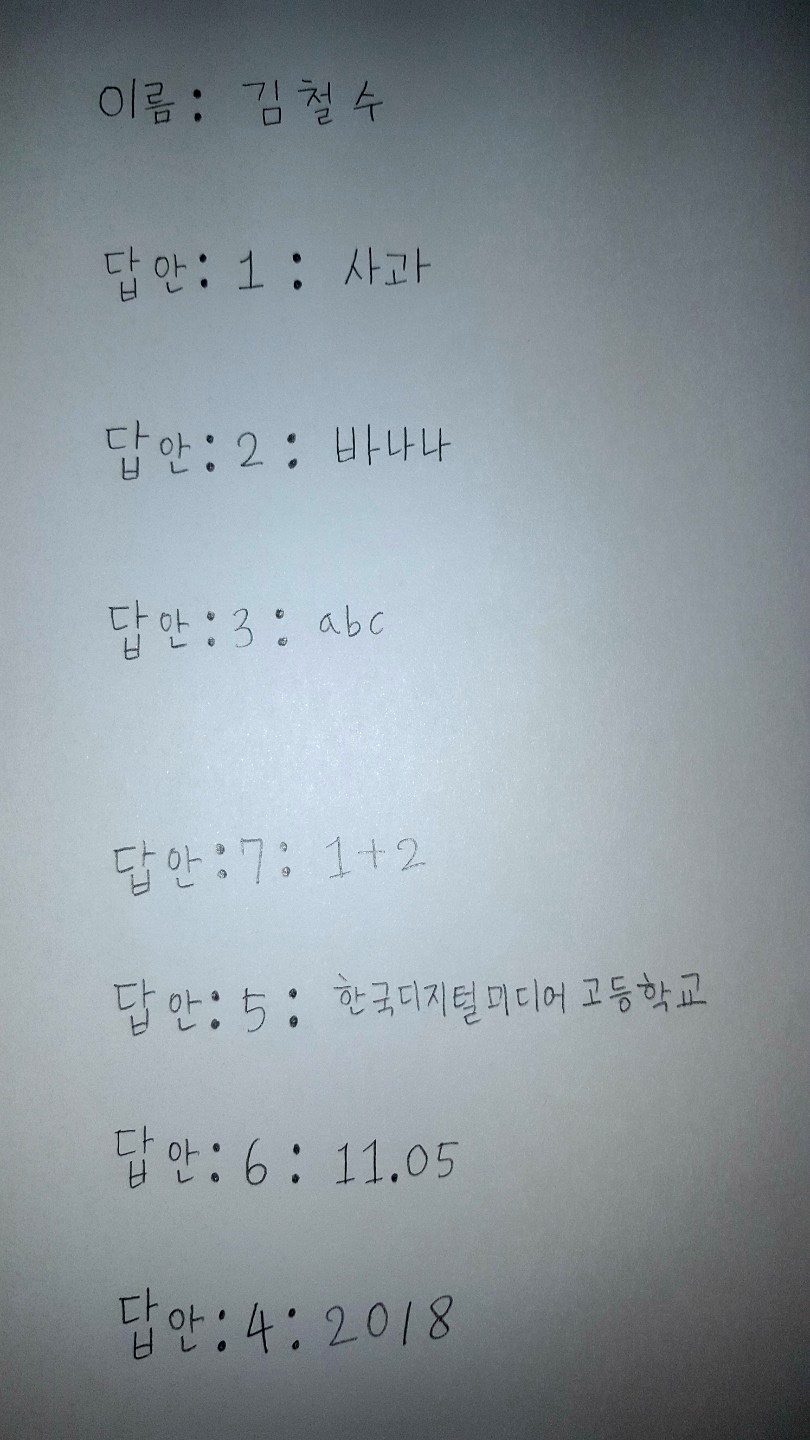 이름: 김철수
답안: 1 : 사과
답안:2 : 바나나
답안:3 : abc
답안:7: 1+2
답안:5: 한국디지털미디어 고등학교
답안:6 : 11.05
답안:4: 2018